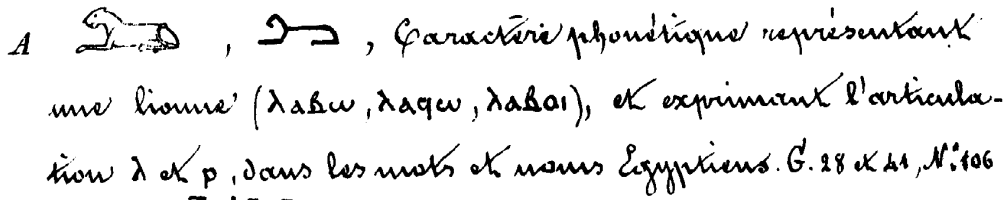 A , , Caractère phonétique représentant
une lionne (ⲗⲁⲃⲱ, ⲗⲁϥⲱ, ⲗⲁⲃⲟⲓ), et exprimant l'articula-
tion ⲗ et ⲣ, dans les mots et noms Égyptiens. G. 28 et 41, N.° 106